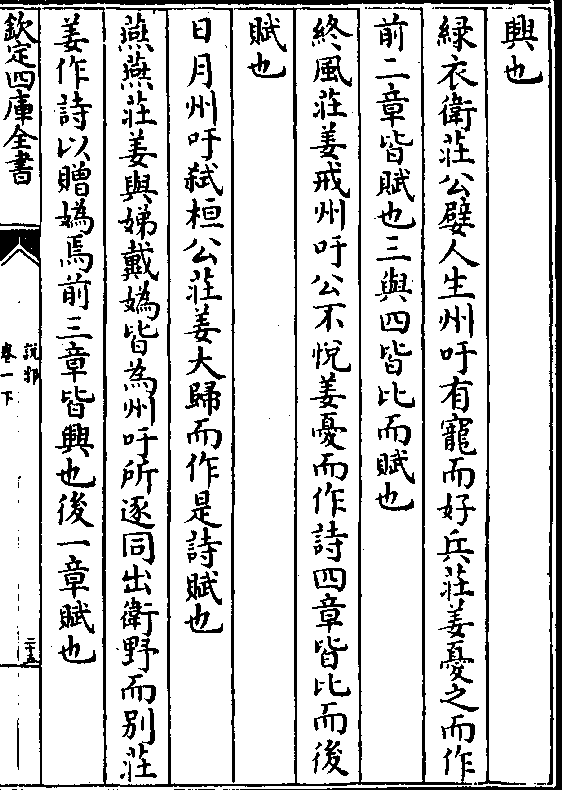 興也
緑衣衛莊公嬖人生州吁有寵而好兵莊姜憂之而作
前二章皆賦也三與四皆比而賦也
終風莊姜戒州吁公不悅姜憂而作詩四章皆比而後
賦也
日月州吁弑桓公莊姜大歸而作是詩賦也
燕燕莊姜與娣戴媯皆為州吁所逐同出衛野而别莊
姜作詩以贈媯焉前三章皆興也後一章賦也
欽定四庫全書
說郛
卷一下
二十五